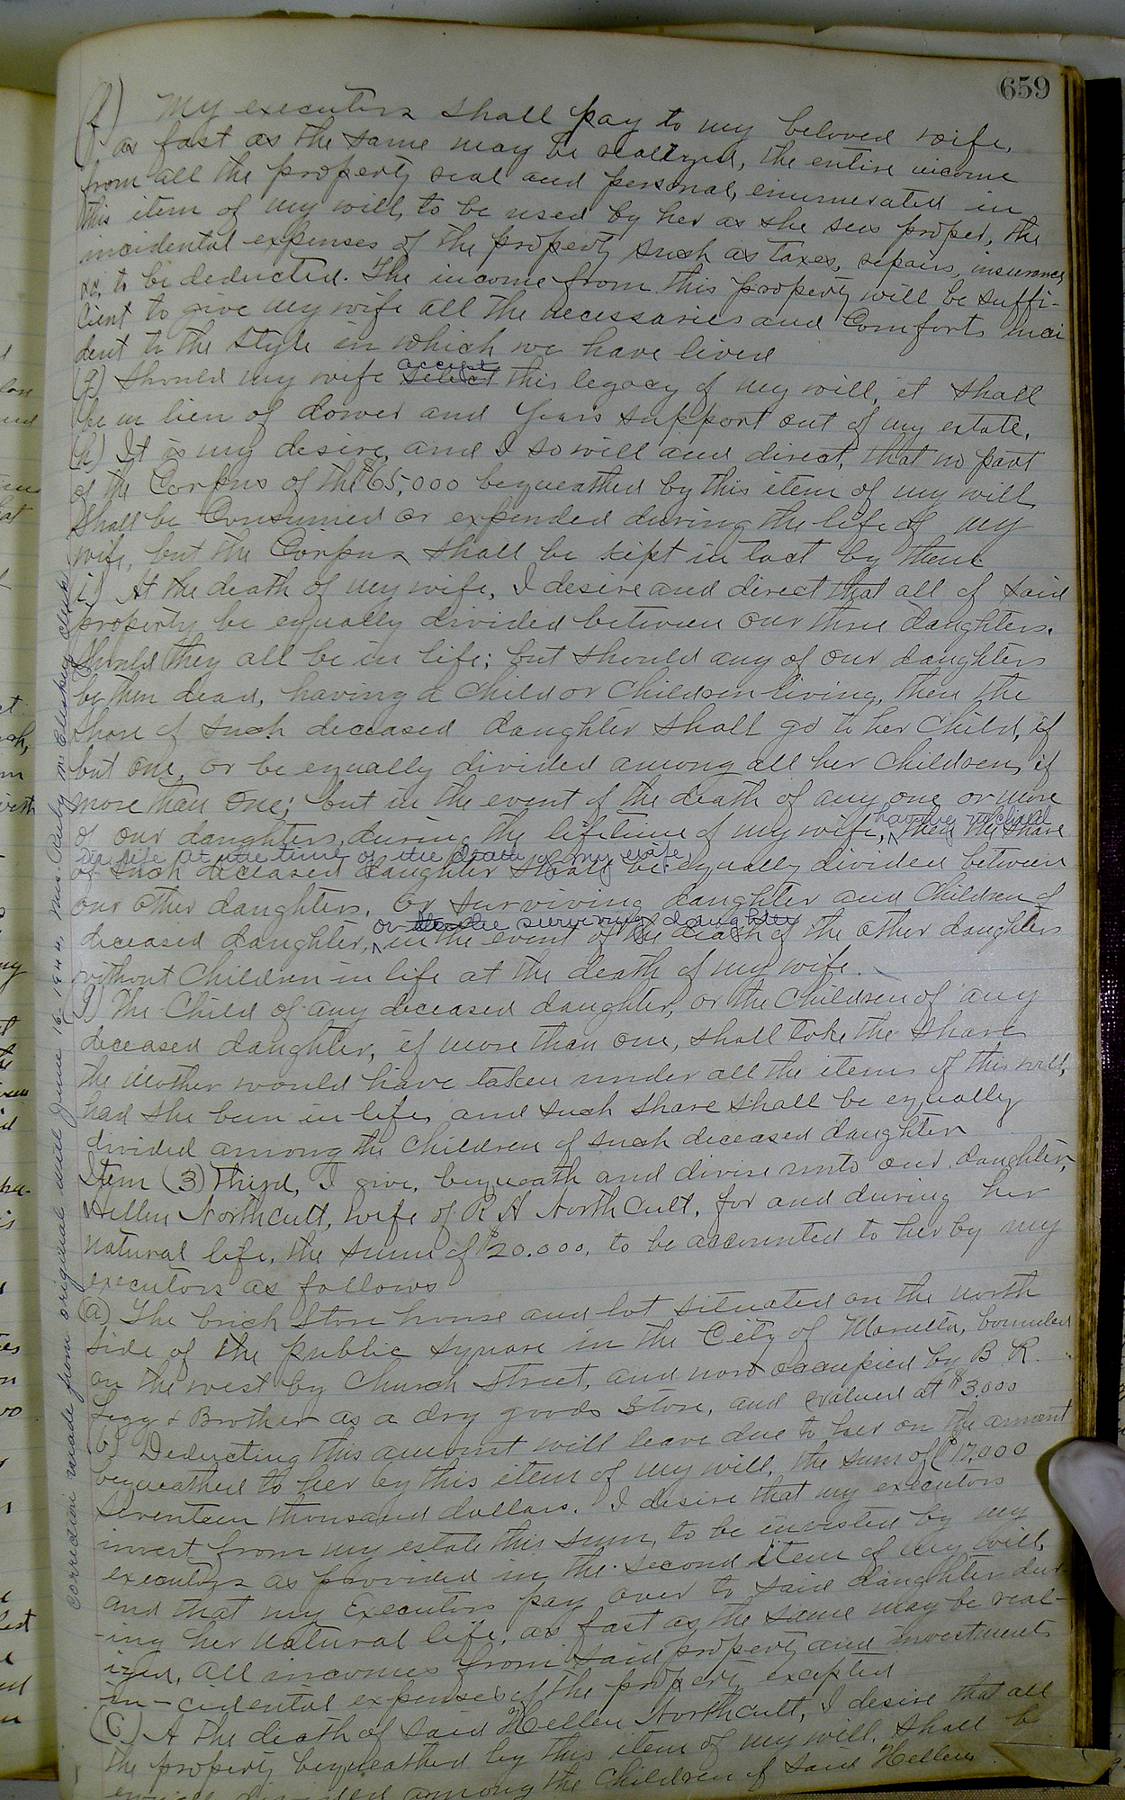 659
(f) My executors shall pay to my beloved wife,
as fast as the same may be realized, the entire income
from all the property real and personal, enumerated in
this item of my will, to be used by her as she sees proper, the
incidental expenses of the property such as taxes, repairs, insurance
&c, to be deducted. The income from this property will be suffi-
cient to give my wife all the necessaries and comforts inci
dent to the style in which we have lived
accept
(g) Should my wife select this legacy of my will, it shall
be in lieu of dower and years support out of my estate.
(h) It is my desire, and I so will and direct, that no part
of the Corpus of the $65,000 bequeathed by this item of my will
shall be Consumed or expended during the life of my
wife, but the Corpus shall be kept in tact by them
(i) At the death of my wife, I desire and direct that all of said
property be equally divided between our three daughters.
Should they all be in life; but should any of our daughters
be then dead, having a child or children living, then the
share of such deceased daughter shall go to her child, if
but one, or be equally divided among all her children, if
more than one; but in the event of the death of any one or more
having no child
of our daughters, during the lifetime of my wife, then the share
in life at the time of the death of my wife,
of such deceased daughter shall be equally divided between
our other daughters, or surviving daughter and children of
or the surviving daughter
deceased daughter, in the event of the death of the other daughters
without children in life at the death of my wife.
(j) The Child of any deceased daughter, or the children of any
deceased daughter, if more than one, shall take the share
the mother would have taken under all the items of this will,
had she been in life, and such share shall be equally
divided among the children of such deceased daughter
Item (3) Third, I give, bequeath and divise unto our daughter,
Hellen Northcutt, wife of R A Northcutt, for and during her
natural life, the sum of $20.000, to be accounted to her by my
executors as follows
(a) The brick Store house and lot situated on the north
side of the public square in the City of Marietta, bounded
on the west by Church Street, and now occupied by B R
Legg & Brother as a dry goods Store, and valued at $3,000
(b) Deducting this amount will leave due to her on the amount
bequeathed to her by this item of my will, the sum of $17,000
seventeen thousand dollars. I desire that my executors
invest from my estate this sum, to be invested by my
executors as provided in the second item of my will,
and that my Executors pay over to said daughter dur-
-ing her natural life, as fast as the same may be real-
ized, all incomes from said property and investments
in-cidental expenses of the property excepted
(C) A the death of said Hellen Northcutt, I desire that all
the property bequeathed by this item of my will, shall be
among the Children of said Hellen
Correction made from original will June 16, 1944, Mrs. Ruby McCleskey, Clerk